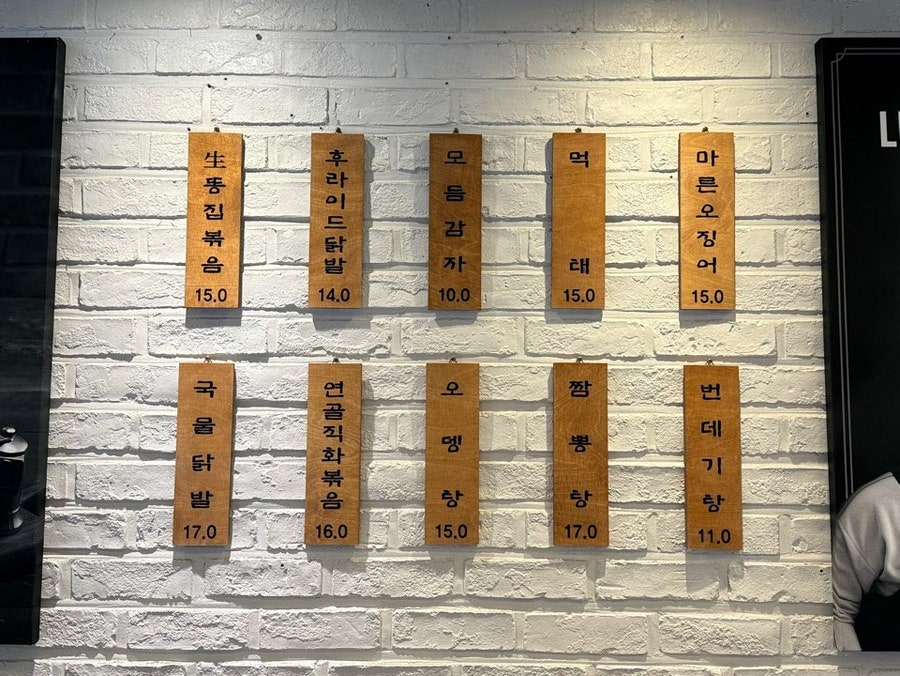 生똥집볶음
15.0
후라이드닭발
14.0
모듬감자
10.0
먹태
15.0
마른오징어
15.0
국물닭발
17.0
연골직화볶음
16.0
오뎅탕
15.0
짬뽕탕
17.0
번데기탕
11.0